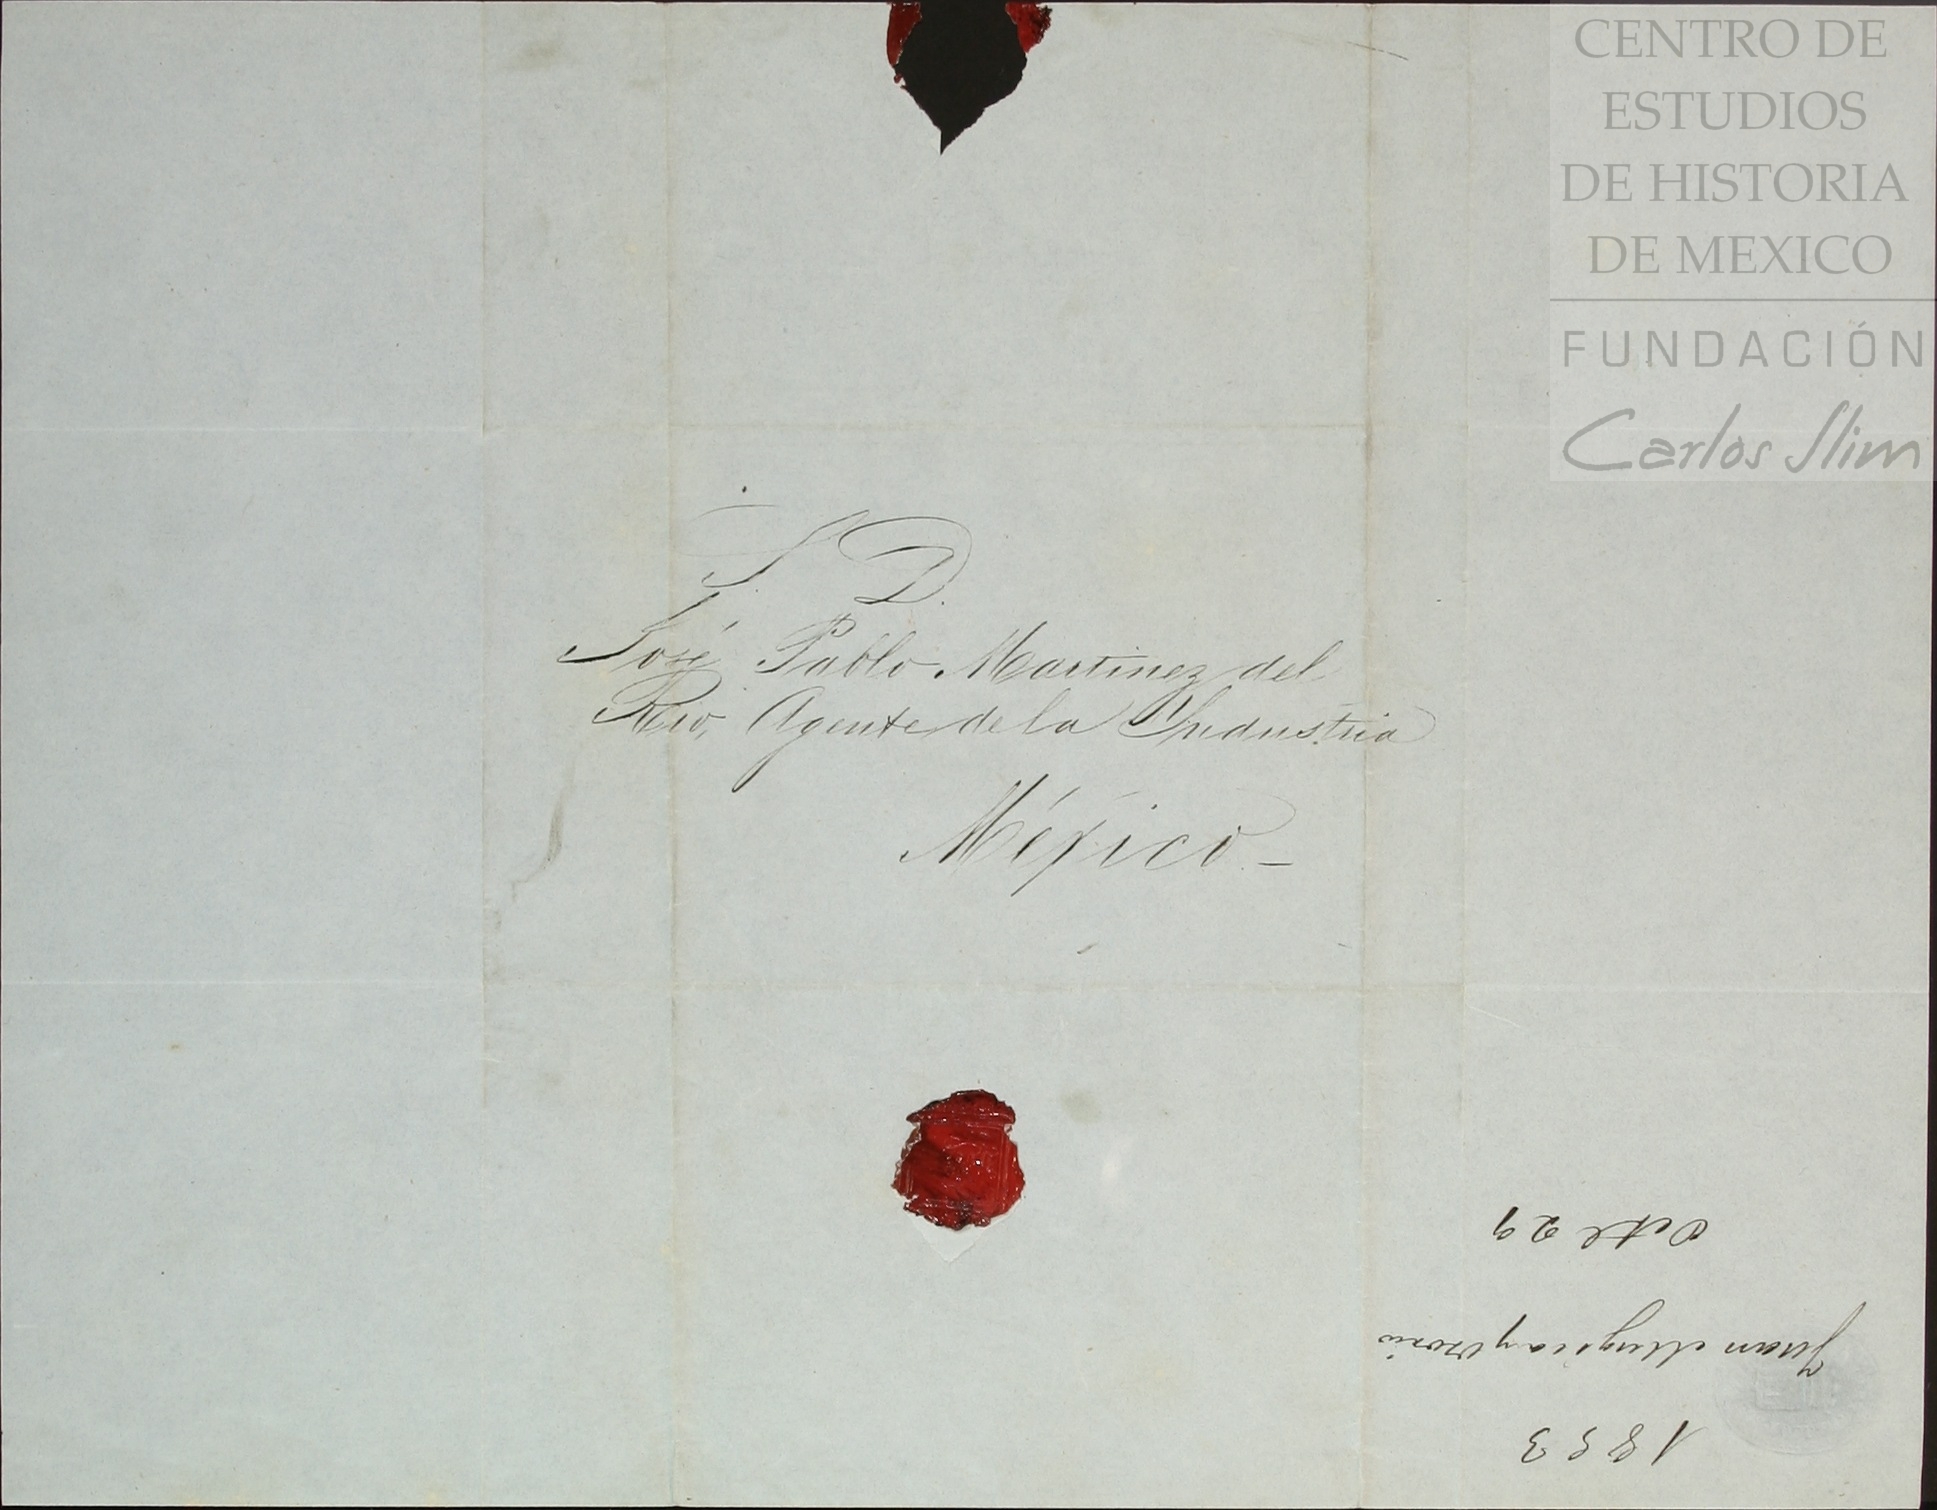 CENTRO DE
ESTUDIOS
DE HISTORIA
DE MEXICO
FUNDACIÓN
Carlos Slim
S. D.
José Pablo Martinez del
Rio, Agente de la Industria
México
1853
Juan Mugica y Osorio
Octe 29